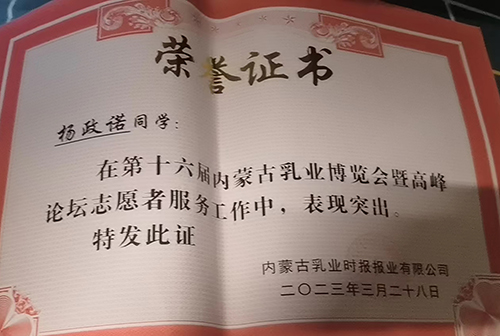 荣誉证书
杨政诺同学：
在第十六届内蒙古乳业博览会暨高峰
论坛志愿者服务工作中，表现突出。
特发此证
内蒙古乳业时报报业有限公司
二〇二三年三月二十八日